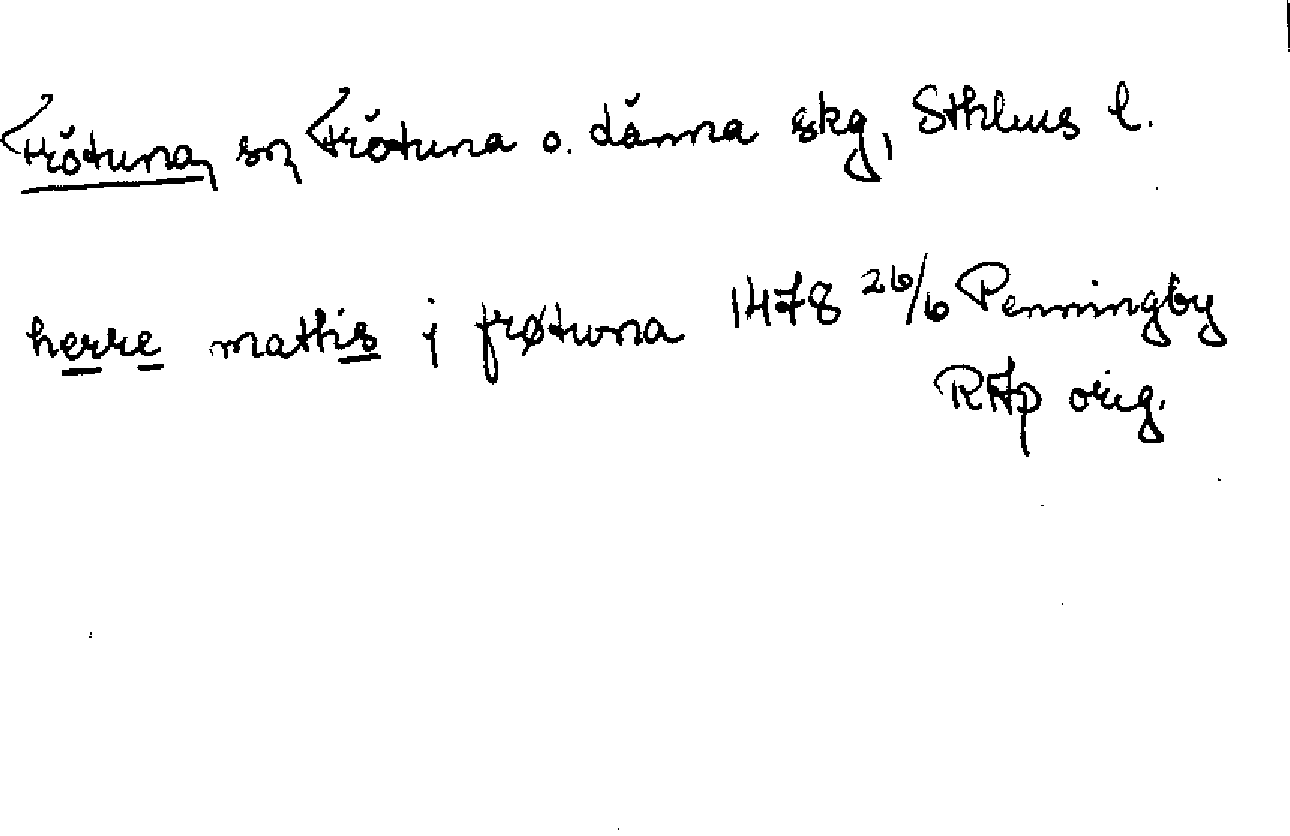 Frötuna, sn, Frötuna o. Länna skg, Sthlms l.
herre mattis j frøtuna 1478 26/6 Penningby
RAp orig.